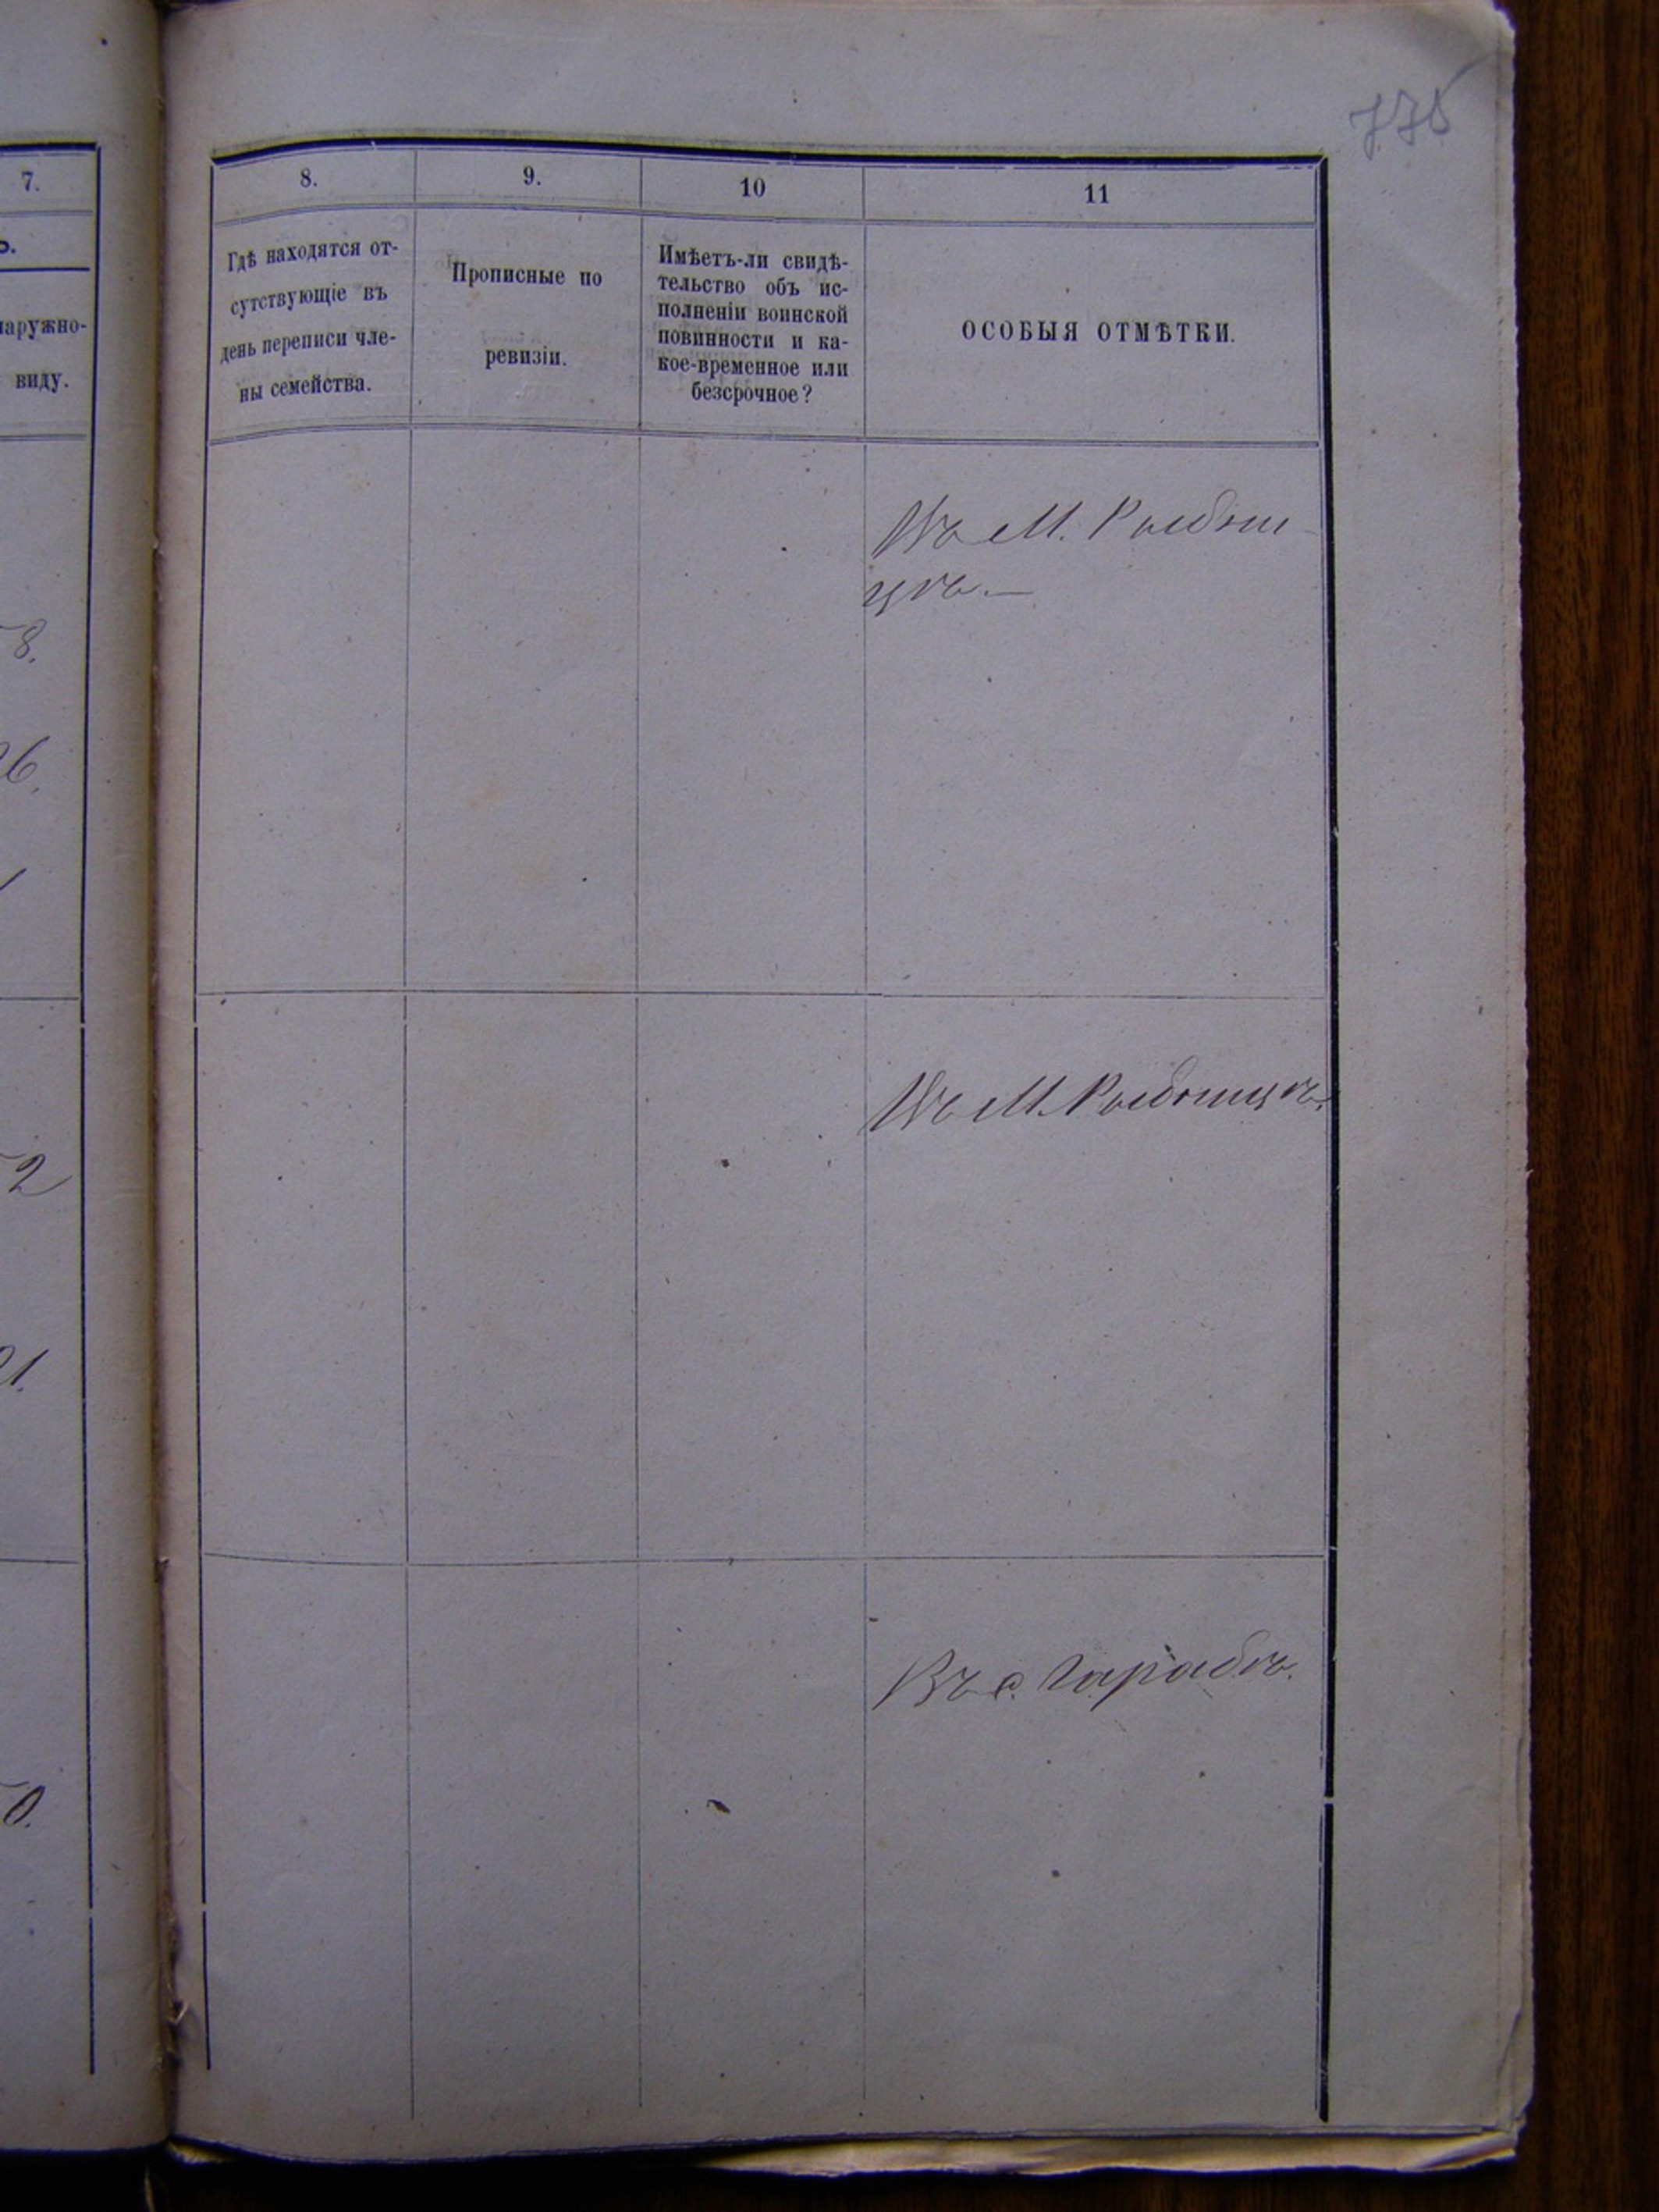 775
7.
ъ.
наружно-
виду.
8.
26.
1
2
21.
0.
8.
9.
10
11
Гдѣ находятся от-
сутствующіе въ
день переписи чле-
ны семейства.
Прописные по
ревизіи.
Имѣетъ-ли свидѣ-
тельство объ ис-
полненіи воинской
повинности и ка-
кое-временное или
безсрочное?
ОСОБЫЯ ОТМѢТКИ.
Въ М. Рыбни-
цѣ.—
Въ М. Рыбницѣ.
Въ с. Гарабѣ.